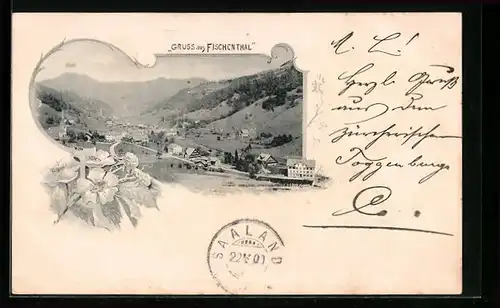 "GRUSS aus FISCHENTHAL"
M. L.!
Herzl. Gruß
aus dem
zürcherischen
Toggenburg
E.
SAALAND